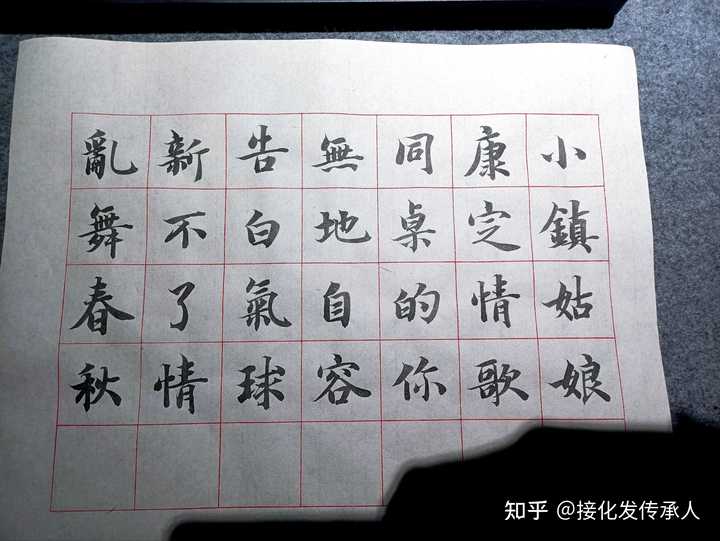 小鎮姑娘
康定情歌
同桌的你
無地自容
告白氣球
新不了情
亂舞春秋
知乎 @接化发传承人